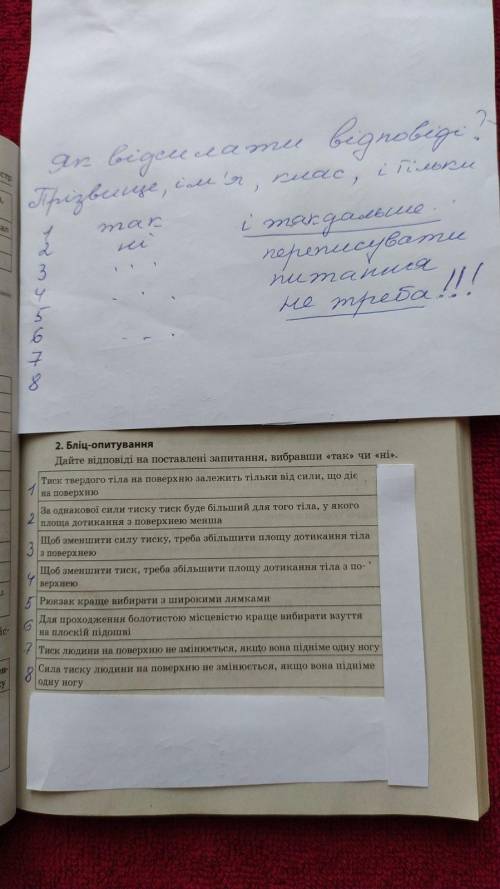 Як відсилати відповіді?
Прізвище, ім'я, клас, і тільки
1 так і так дальше.
2 ні переписувати
3 ''' питання
4 . . . не треба!!!
5
6 - - -
7
8
2. Бліц-опитування
Дайте відповіді на поставлені запитання, вибравши «так» чи «ні».
1 Тиск твердого тіла на поверхню залежить тільки від сили, що діє
на поверхню
2 За однакової сили тиску тиск буде більший для того тіла, у якого
площа дотикання з поверхнею менша
3 Щоб зменшити силу тиску, треба збільшити площу дотикання тіла
з поверхнею
4 Щоб зменшити тиск, треба збільшити площу дотикання тіла з по-
верхнею
5 Рюкзак краще вибирати з широкими лямками
6 Для проходження болотистою місцевістю краще вибирати взуття
на плоскій підошві
7 Тиск людини на поверхню не змінюється, якщо вона підніме одну ногу
8 Сила тиску людини на поверхню не змінюється, якщо вона підніме
одну ногу